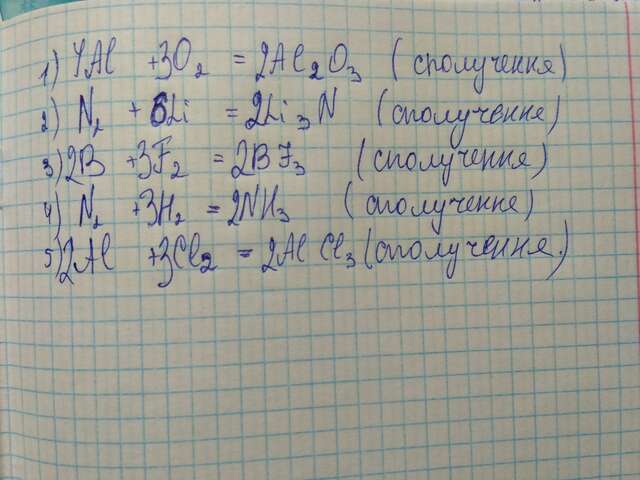 1) 4Al + 3O₂ = 2Al₂O₃ (сполучення)
2) N₂ + 6Li = 2Li₃N (сполучення)
3) 2B + 3F₂ = 2BF₃ (сполучення)
4) N₂ + 3H₂ = 2NH₃ (сполучення)
5) 2Al + 3Cl₂ = 2AlCl₃ (сполучення)